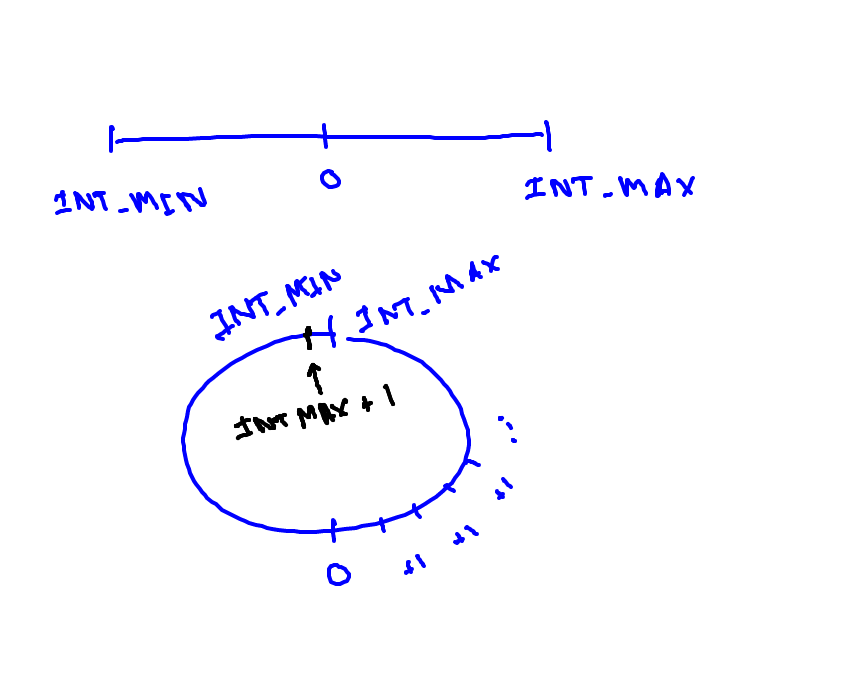 INT_MIN 0 INT_MAX
INT_MIN INT_MAX
INTMAX + 1
0 +1 +1 +1 ...